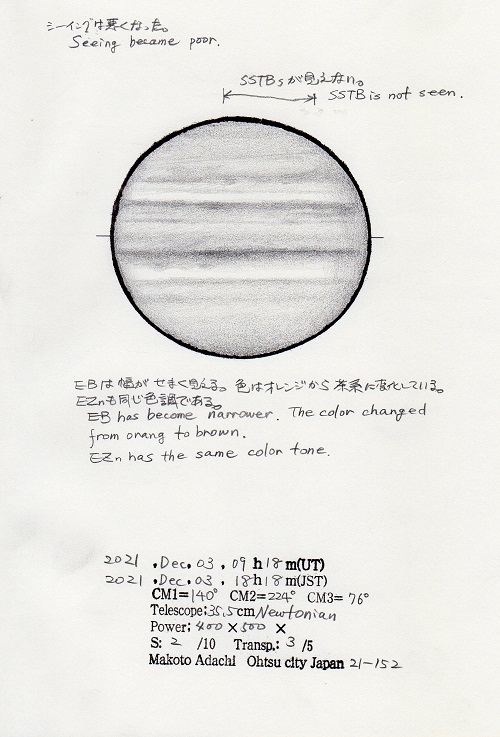 シーイングは悪くなった。
Seeing became poor.
SSTBsが見えない。
SSTB is not seen.
EBは幅がせまく見える。色はオレンジから茶系に変化している。
EZnも同じ色調である。
EB has become narrower. The color changed
from orang to brown.
EZn has the same color tone.
2021 .Dec. 03, 09 h 18 m(UT)
2021 .Dec. 03, 18 h 18 m(JST)
CM1=140° CM2=224° CM3= 76°
Telescope;35.5cm Newtonian
Power; 400 × 500 ×
S: 2 /10 Transp.: 3 /5
Makoto Adachi Ohtsu city Japan 21-152